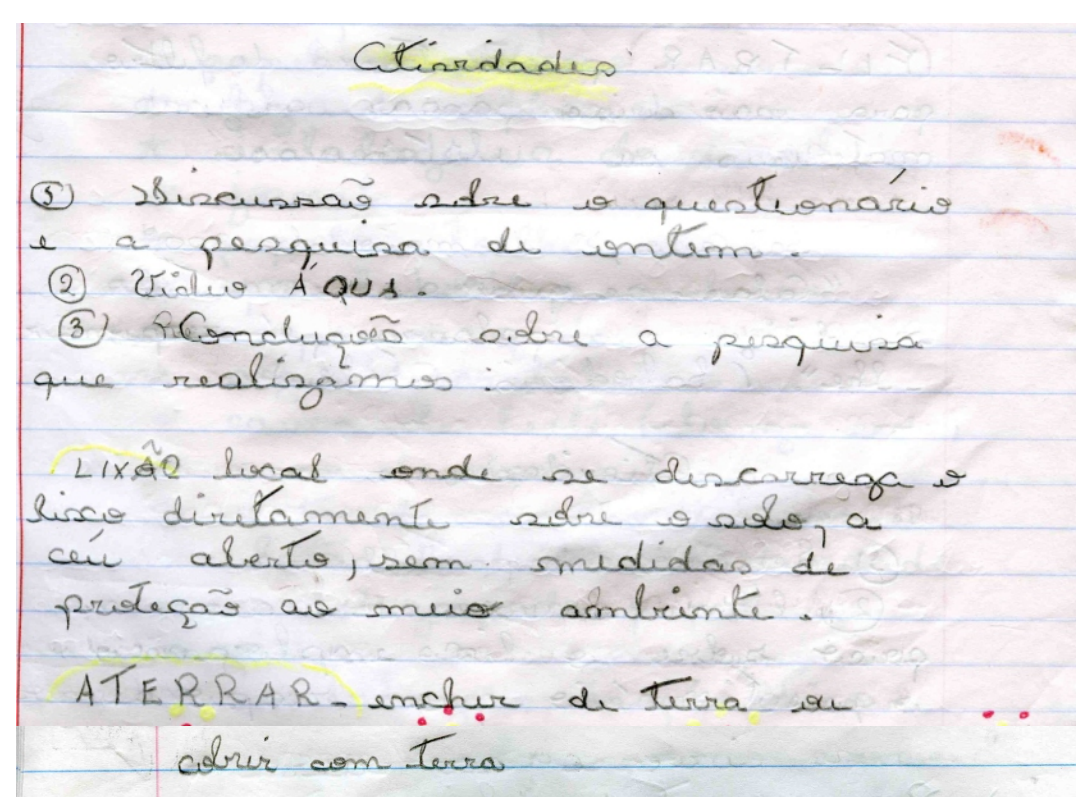 Atividades
① Discussão sobre o questionário
e a pesquisa de ontem.
② Vídeo ÁGUA.
③ Conclusão sobre a pesquisa
que realizamos:
LIXÃO local onde se descarrega o
lixo diretamente sobre o solo, a
céu aberto, sem medidas de
proteção ao meio ambiente.
ATERRAR - encher de terra ou
cobrir com terra